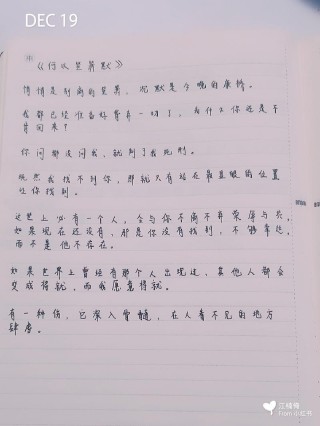 DEC 19
《何以笙箫默》
悄悄是别离的笙箫，沉默是今晚的康桥。
我都已经准备好背负一切了，为什么你还是不
肯回来？
你问都没问我，就判了我死刑。
既然我找不到你，那就只有站在最显眼的位置
让你找到。
这世上必有一个人，会与你不离不弃荣辱与共，
如果现在还没有，那是你没有找到，不够幸运，
而不是他不存在。
如果世界上曾经有那个人出现过，其他人都会
变成将就，而我不愿意将就。
有一种伤，它深入骨髓，在人看不见的地方
肆虐。
From小红书